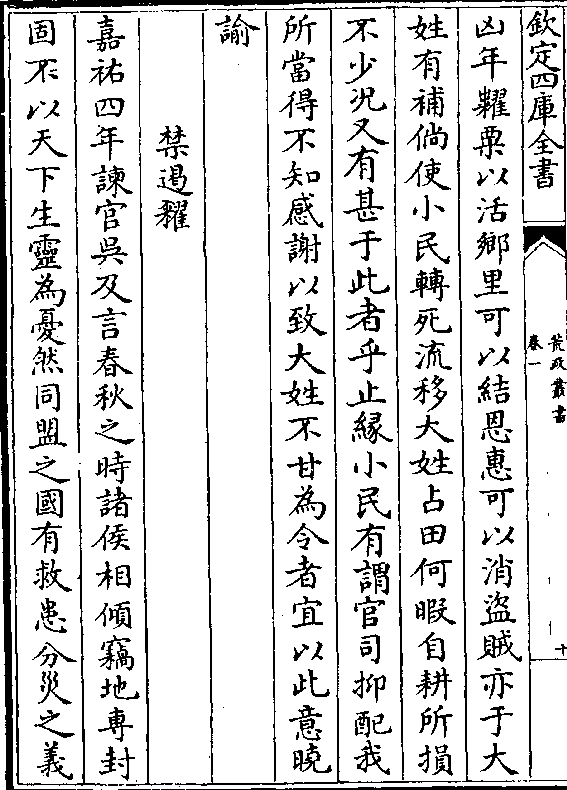 欽定四庫全書
荒政叢書
卷一
十
凶年糶粟以活鄉里可以結恩惠可以消盜賊亦于大
姓有補倘使小民轉死流移大姓占田何暇自耕所損
不少况又有甚于此者乎止緣小民有謂官司抑配我
所當得不知感謝以致大姓不甘為令者宜以此意曉
諭
禁遏糴
嘉祐四年諫官吳及言春秋之時諸侯相傾竊地專封
固不以天下生靈為憂然同盟之國有救患分災之義